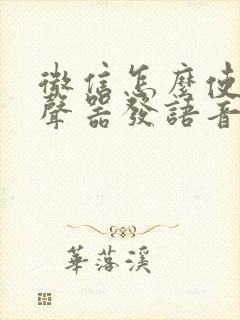 微信怎麼使
聲器發語音
華落溪